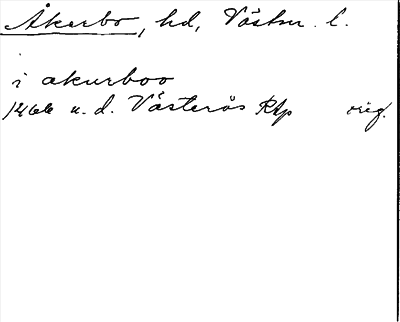 Åkerbo, hd, Västm. l.
i akurboo
1466 u. d. Västerås RAp orig.